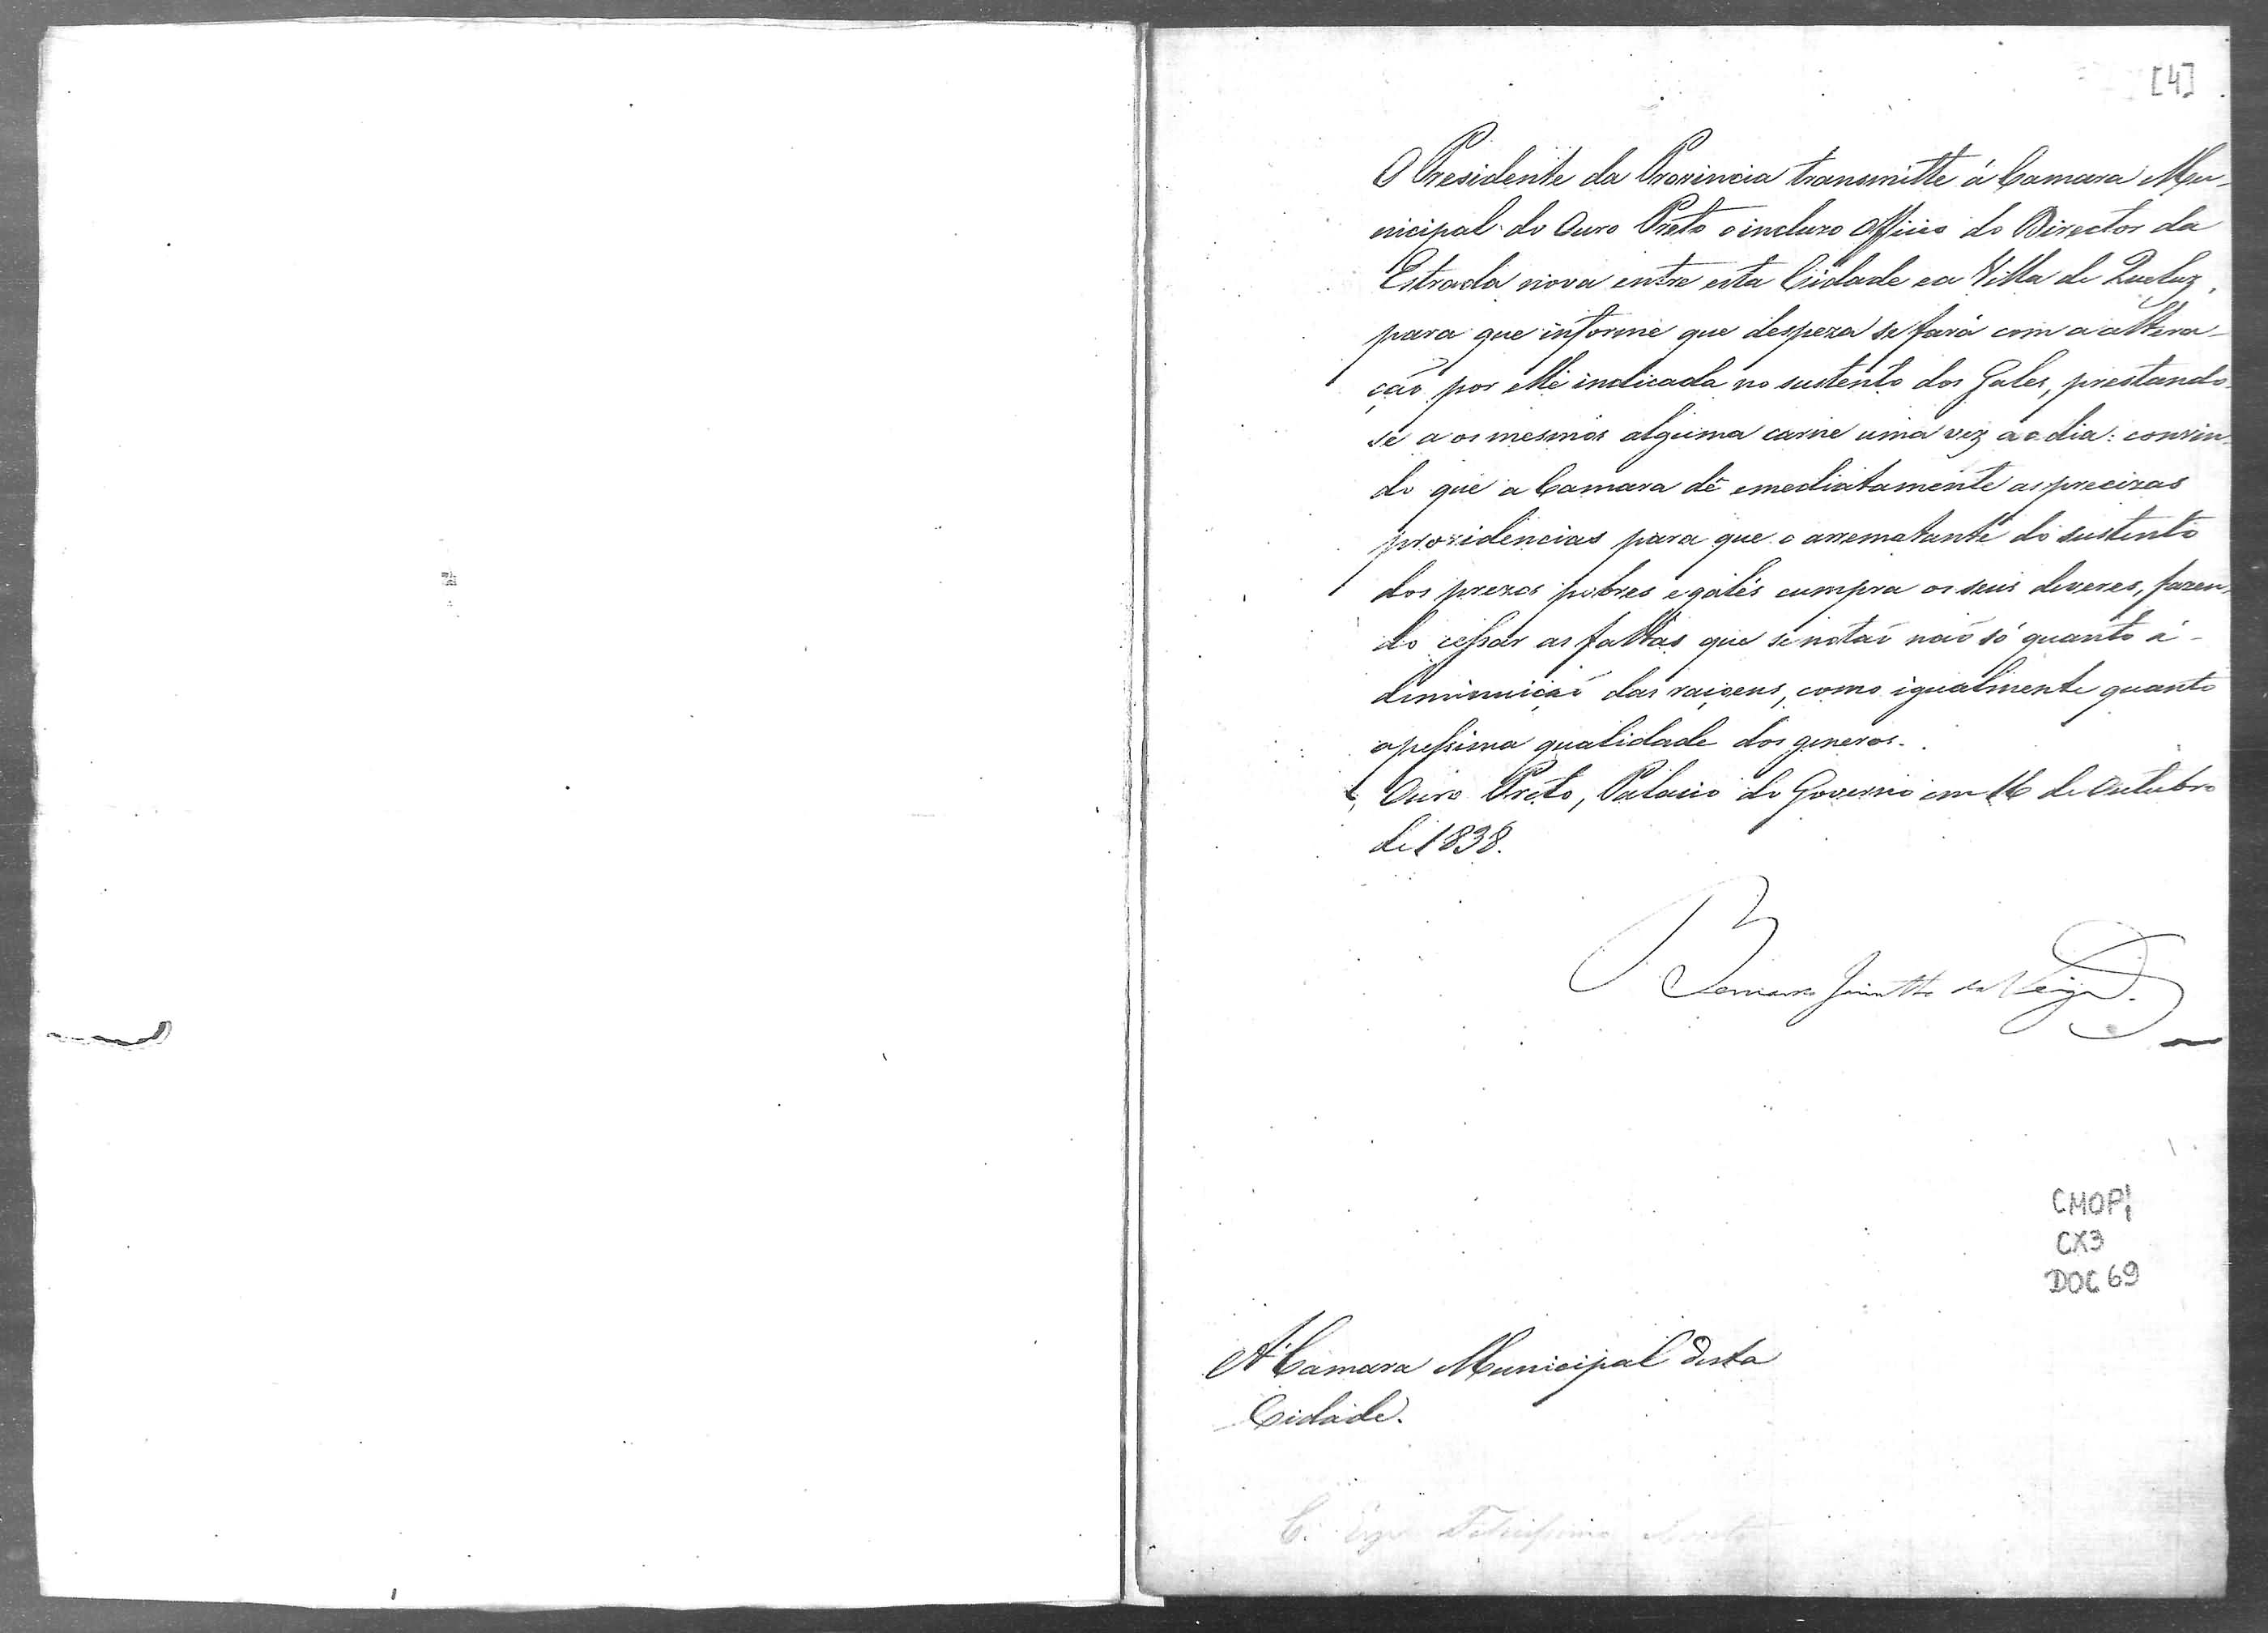 [4]
O Presidente da Provincia transmitte á Camara Mu-
nicipal do Ouro Preto o incluzo Officio do Director da
Estrada nova entre esta Cidade e a Villa de Queluz,
para que informe que despeza se fará com a altera-
ção por elle indicada no sustento dos Gales, prestando-
se a os mesmos alguma carne uma vez ao dia: convin-
do que a Camara dê emediatamente as precizas
providencias para que o arrematante do sustento
dos prezos pobres e galés cumpra os seus deveres, fazen-
do cessar as faltas que se notaõ naõ só quanto á
diminuiçaõ das raçoens, como igualmente quanto
a pessima qualidade dos generos.
Ouro Preto, Palacio do Governo em 16 de Outubro
de 1838.
Bernardo Jacintho da Veiga.
CMOP1
CX3
DOC 69
A' Camara Municipal desta
Cidade.